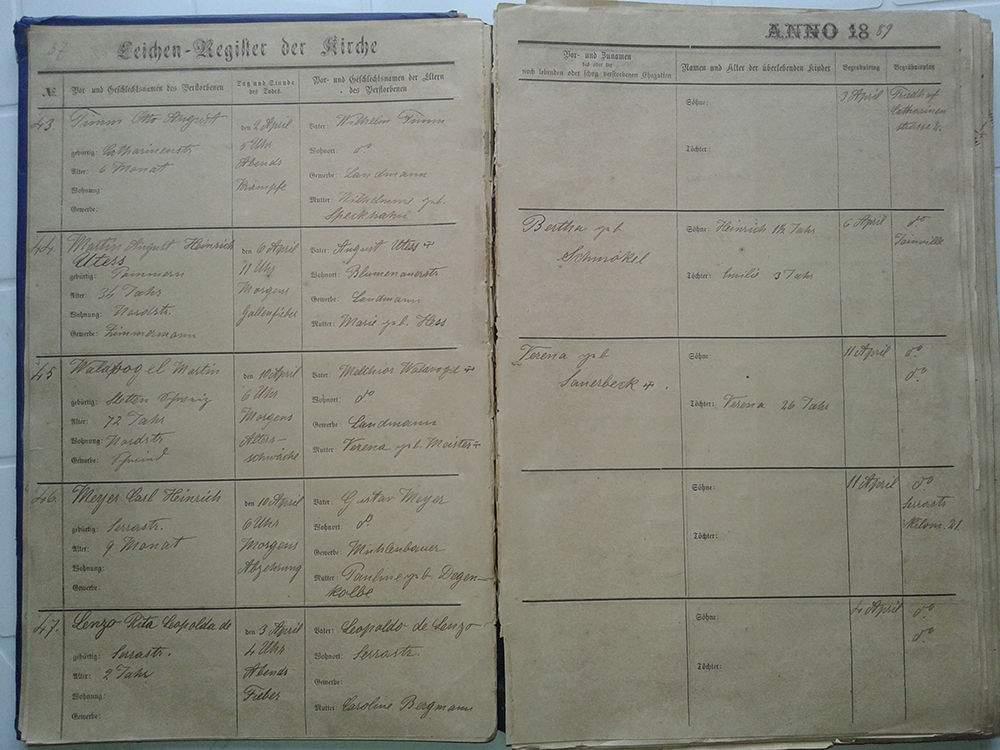 57
Leichen-Register der Kirche
№
Vor und Geschlechtsnamen des Verstorbenen
Tag und Stunde
des Todes.
Vor- und Geschlechtsnamen der Eltern
des Verstorbenen
43.
Timm Otto August
gebürtig: Catharinenstr
Alter: 6 Monat
Wohnung:
Gewerbe:
den 2 April
5 Uhr
Abends
Krämpfe
Vater: Wilhelm Timm
Wohnort: do
Gewerbe: Landmann
Mutter: Wilhelmine geb.
Speckhahn
44.
Martin August Heinrich
Utess
gebürtig: Pommern
Alter: 34 Jahr
Wohnung: Nordstr.
Gewerbe: Zimmermann
den 6 April
11 Uhr
Morgens
Gallenfieber
Vater: August Utess +
Wohnort: Blumenauerstr
Gewerbe: Landmann
Mutter: Marie geb. Hess
45
Waldvogel Martin
gebürtig: Stetten Schweiz
Alter: 72 Jahr
Wohnung: Nordstr.
Gewerbe:
den 10 April
6 Uhr
Morgens
Alters-
schwäche
Vater: Melchior Waldvogel +
Wohnort: do
Gewerbe: Landmann
Mutter: Verena geb. Meister +
46.
Meyer Carl Heinrich
gebürtig: Serrastr.
Alter: 9 Monat
Wohnung:
Gewerbe:
den 10 April
6 Uhr
Morgens
Abzehrung
Vater: Gustav Meyer
Wohnort: do
Gewerbe: Mühlenbauer
Mutter: Pauline geb. Degen-
kolbe
47.
Lenzo Rita Leopolda de
gebürtig: Serrastr.
Alter: 2 Jahr
Wohnung:
Gewerbe:
den 3 April
4 Uhr
Abends
Fieber
Vater: Leopoldo de Lenzo
Wohnort: Serrastr.
Gewerbe:
Mutter: Caroline Bergmann
ANNO 1889
Vor- und Zunamen
des oder der
noch lebenden oder schon verstorbenen Ehegatten
Namen und Alter der überlebenden Kinder
Begräbnistag
Begräbnisplatz
Söhne:
Töchter:
3 April
Friedhof
Catharinen
strasse
Bertha geb
Schmökel
Söhne: Heinrich 1½ Jahr
Töchter: Emilie 3 Jahr
6 April
do
Joinville
Verena geb
Sauerbeck +.
Söhne:
Töchter: Verena 26 Jahr
11 April
do
do
Söhne:
Töchter:
11 April
do
Serrastr
Kilom. 21.
Söhne:
Töchter:
4 April
do
do